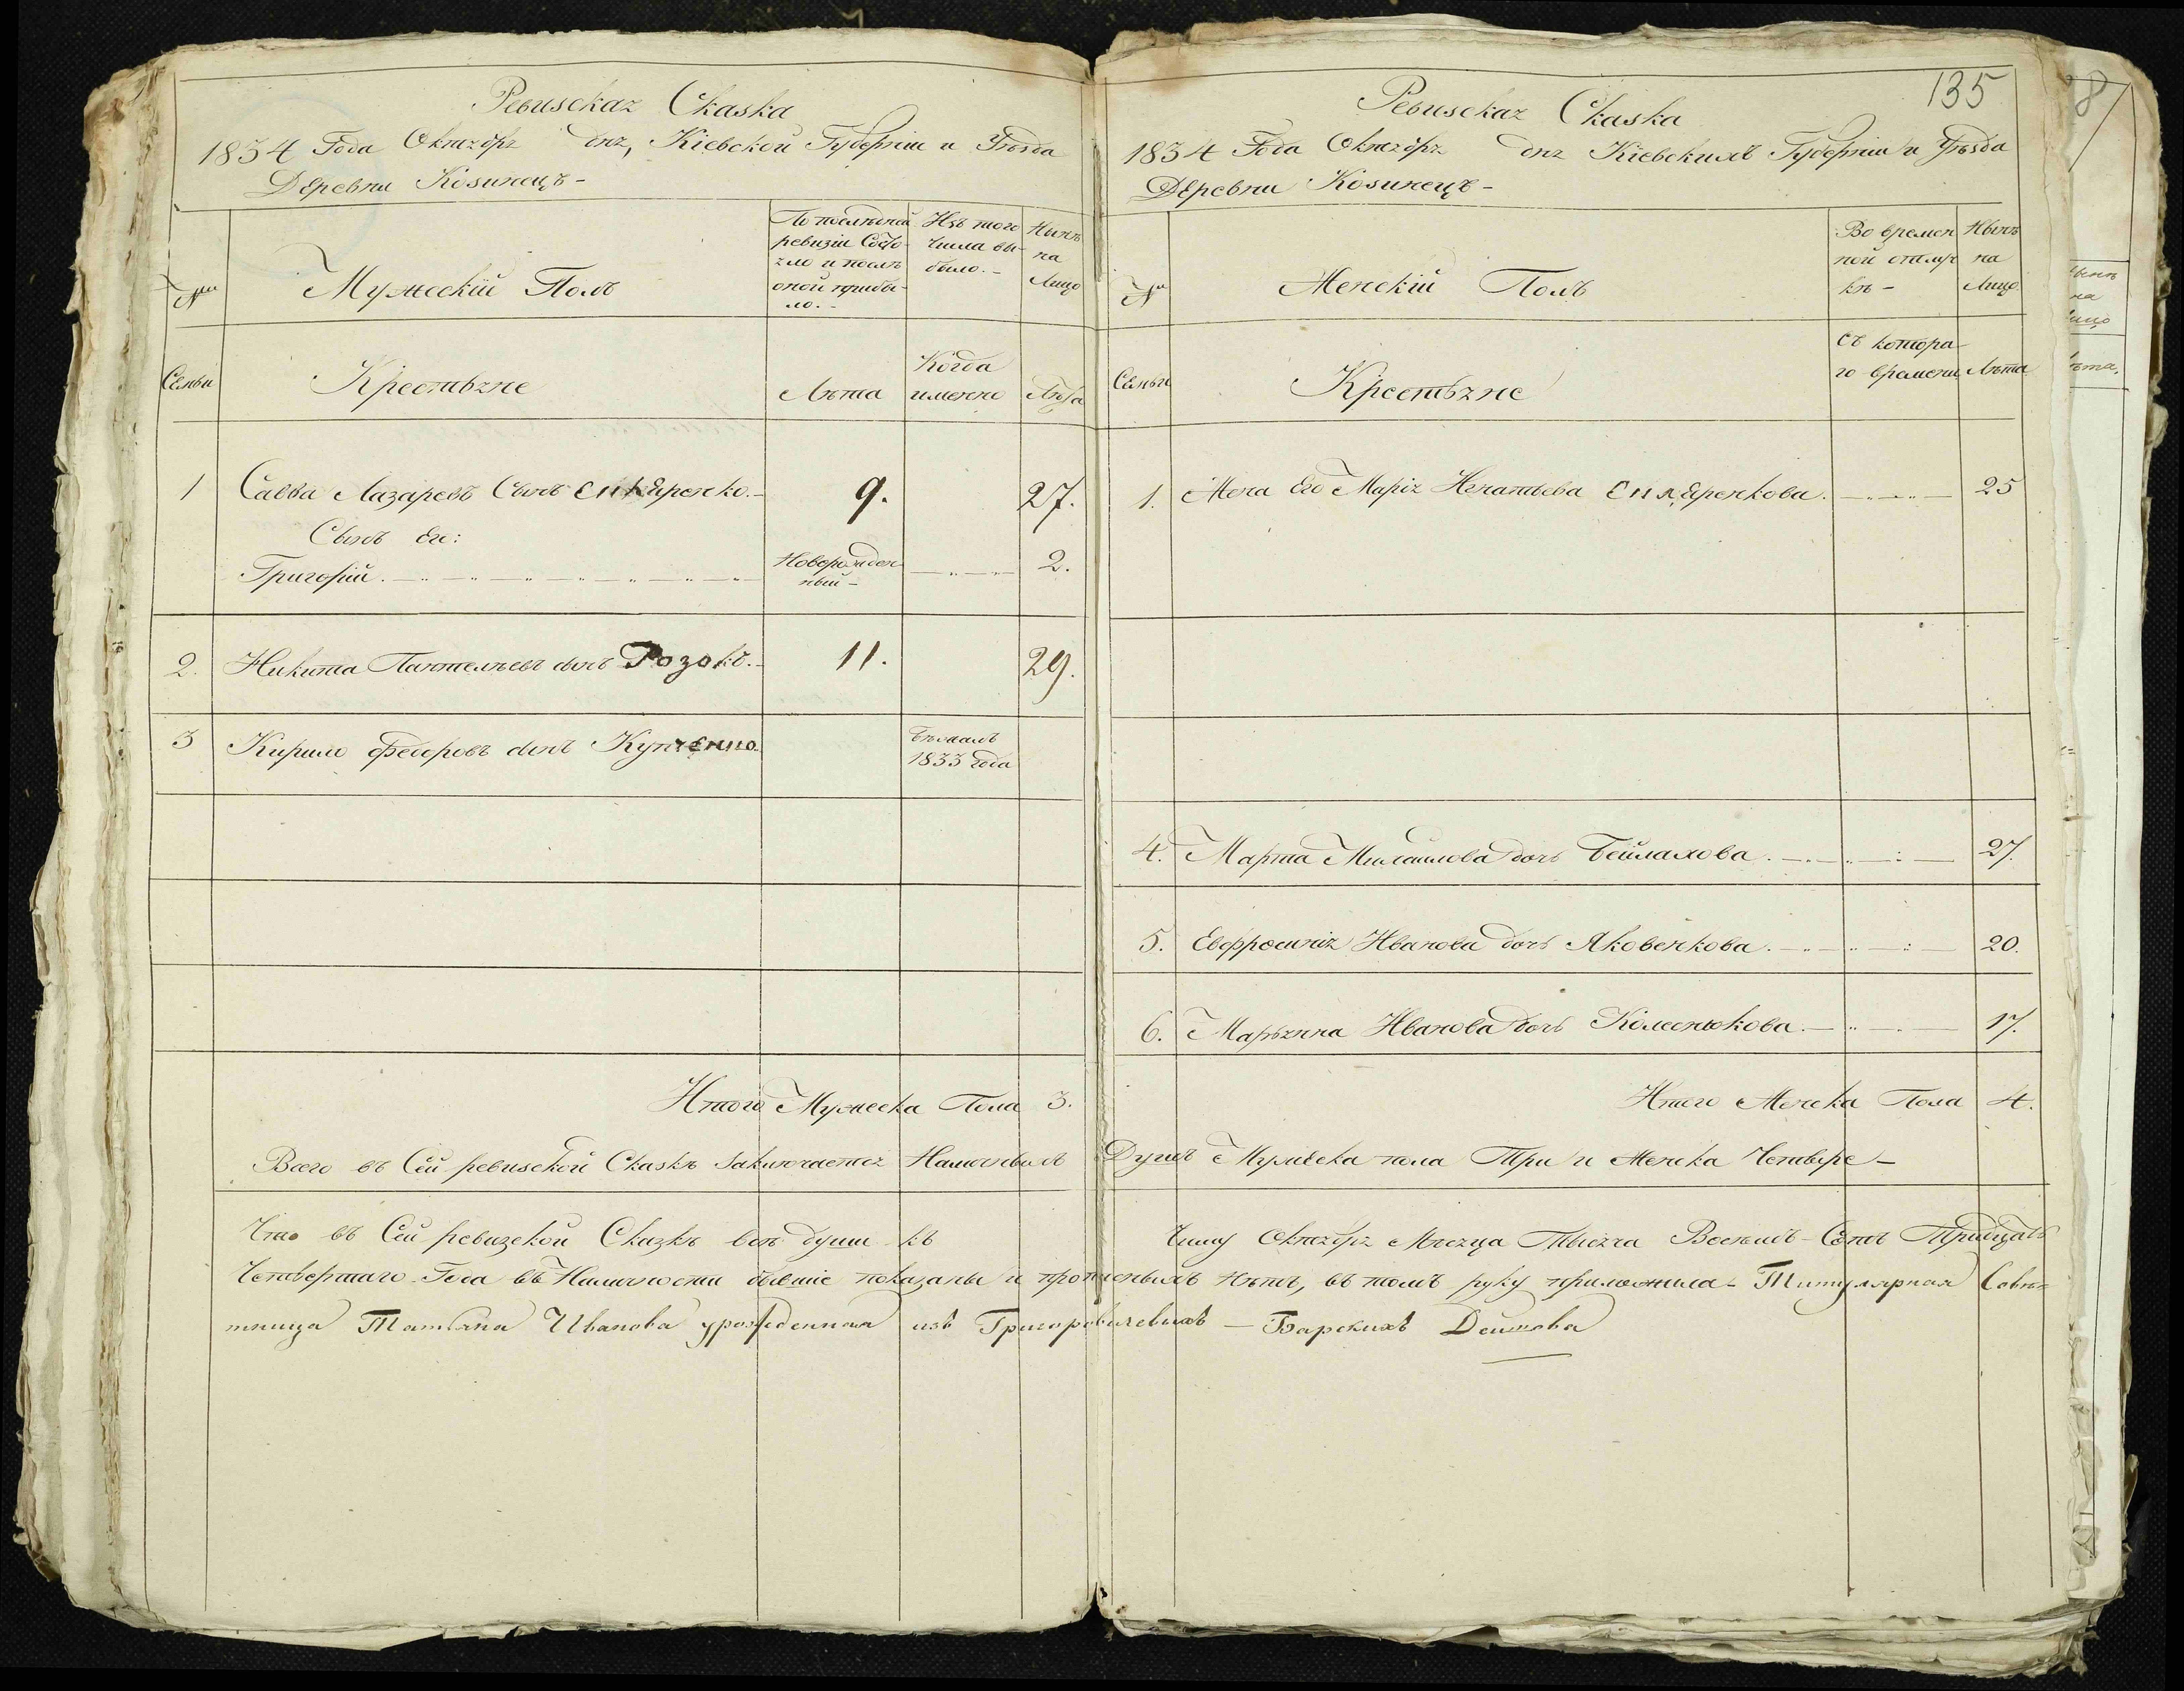 Ревизская Сказка
1834 Года Октября дня, Кіевской Губерніи и Уѣзда
Деревни Козинецъ-
№ Мужескій Полъ
По послѣдней ревизіи Состояло и послѣ оной прибыло.-
Изъ того числа выбыло.-
Нынѣ на Лицо
Семьи Крестьяне Лѣта Когда именно Лѣта
1 Савва Лазаревъ Сынъ 9. 27.
Сынъ Его:
Григорій. Новорожденный- 2.
2. Никита Пантелѣевъ сынъ Розокъ.- 11. 29.
3 Кирило Федоровъ сынъ Купченко Бѣжалъ 1833 года
Итого Мужеска Пола 3.
135
Ревизская Сказка
1834 Года Октября дня Кіевскихъ Губерніи и Уѣзда
Деревни Козинецъ-
№ Женскій Полъ
Во временной отлучкѣ-
Нынѣ на Лицо
Семьи Крестьяне Съ котораго времени Лѣта
1. Жена Его Марія Игнатьева 25
4. Марта Михайлова дочь Бейлахова. 27.
5. Евфросинія Иванова дочь Яковенкова. 20.
6. Марьянна Иванова дочь Колесникова. 17.
Итого Женска Пола 4.
Всего въ Сей ревизской Сказкѣ Заключается Наличныхъ Душъ Мужеска пола Три и Женска Четыре-
Что въ Сей ревизской Сказкѣ всѣ души къ Числу Октября Мѣсяца Тысяча Восемь-Сотъ Тридцать
Четвертаго Года въ Наличности бывшіе показаны и прописныхъ нѣтъ, въ томъ руку приложила- Титулярная Совѣ-
тница Татьяна Иванова урожденная изъ Григоровичевыхъ - Барскихъ